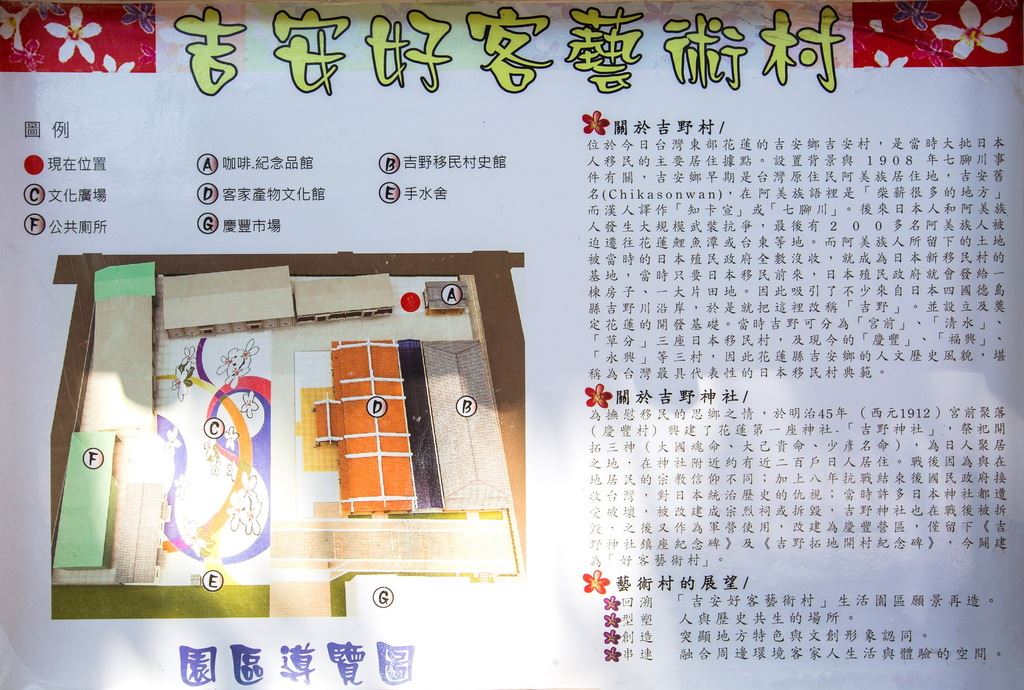 吉安好客藝術村
圖例
現在位置
A 咖啡.紀念品館
B 吉野移民村史館
C 文化廣場
D 客家產物文化館
E 手水舍
F 公共廁所
G 慶豐市場
A
B
C
D
E
F
G
園區導覽圖
關於吉野村/
位於今日台灣東部花蓮的吉安鄉吉安村，是當時大批日本
人移民的主要居住據點。設置背景與 1908 年七腳川事
件有關，吉安鄉早期是台灣原住民阿美族居住地，吉安舊
名(Chikasonwan)，在阿美族語裡是「柴薪很多的地方」
而漢人譯作「知卡宣」或「七腳川」。後來日本人和阿美族
人發生大規模武裝抗爭，最後有２００多名阿美族人被
迫遷往花蓮鯉魚潭或台東等地。而阿美族人所留下的土地
被當時的日本殖民政府全數沒收，就成為日本新移民村的
基地，當時只要日本移民前來，日本殖民政府就會發給一
棟房子、一大片田地。因此吸引了不少來自日本四國德島
縣吉野川沿岸，於是就把這裡改稱「吉野」。並設立及奠
定花蓮的開發基礎。當時吉野可分為「宮前」、「清水」、
「草分」三座日本移民村，及現今的「慶豐」、「福興」、
「永興」等三村，因此花蓮縣吉安鄉的人文歷史風貌，堪
稱為台灣最具代表性的日本移民村典範。
關於吉野神社/
為撫慰移民的思鄉之情，於明治45年（西元1912）宮前聚落
（慶豐村）興建了花蓮第一座神社-「吉野神社」，祭祀開
拓三神（大國魂命、大己貴命、少彥名命），為日人聚居
之地，在神社附近約有近二百戶日人居住。戰後因為與在
地居民的宗教信仰不同；加上八年抗戰結束後國民政府接
收台灣，對日本統治歷史的仇視；當時許多日本神社都遭
受破壞，被改建成宗烈祠或拆毀，吉野神社也在戰後被拆
毀，之後又作為軍營使用，改建為慶豐營區，僅留下《吉
野神社鎮座紀念碑》及《吉野拓地開村紀念碑》，今關建
為「好客藝術村」。
藝術村的展望/
回溯 「吉安好客藝術村」生活園區願景再造。
型塑 人與歷史共生的場所。
創造 突顯地方特色與文創形象認同。
串連 融合周邊環境客家人生活與體驗的空間。